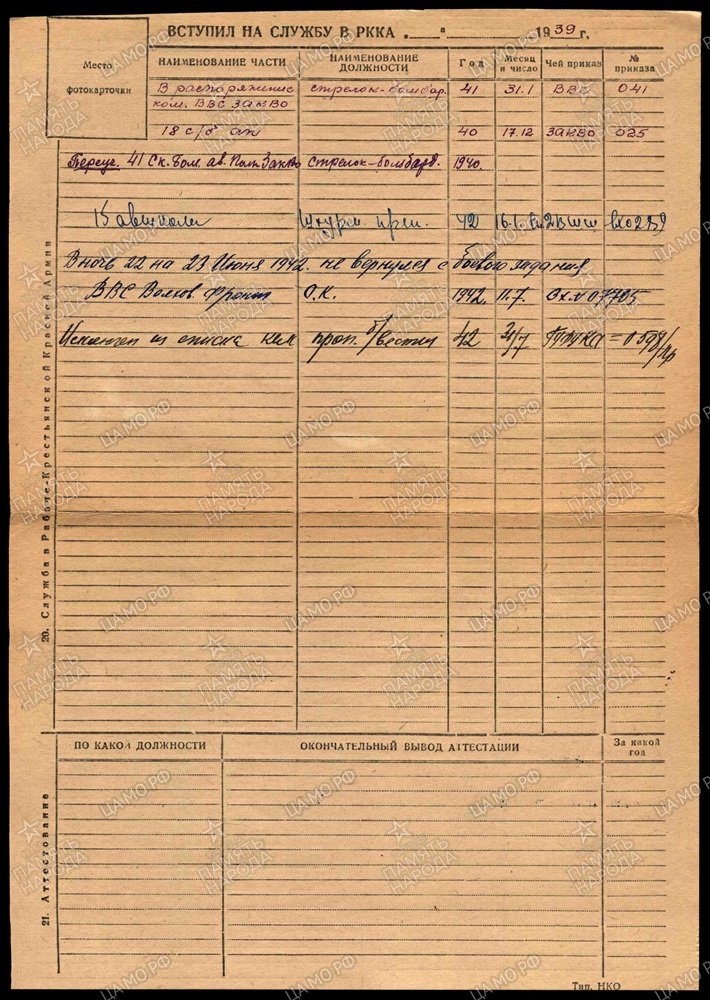 ВСТУПИЛ НА СЛУЖБУ В РККА „ “ 1939 г.
Место фотокарточки
НАИМЕНОВАНИЕ ЧАСТИ НАИМЕНОВАНИЕ ДОЛЖНОСТИ Год Месяц и число Чей приказ № приказа
В распоряжение стрелок-бомбар. 41 31.1 ВВС 041
ком. ВВС ЗАКВО
18 с/б ап 40 17.12 ЗАКВО 025
41 Ск. бом. ав. стрелок-бомбард. 1940.
42
В ночь 22 на 23 Июня 1942. не вернулся с боевого задания
ВВС Волхов. фронта О.К. 1942. 11.7. Вх. № 07705
Исключен из списка как проп. б/вести 42 =0598/пр
20. Служба в Рабоче-Крестьянской Красной Армии
ПО КАКОЙ ДОЛЖНОСТИ ОКОНЧАТЕЛЬНЫЙ ВЫВОД АТТЕСТАЦИИ За какой год
21. Аттестование
Тип. НКО
ПАМЯТЬ НАРОДА
ЦАМО.РФ